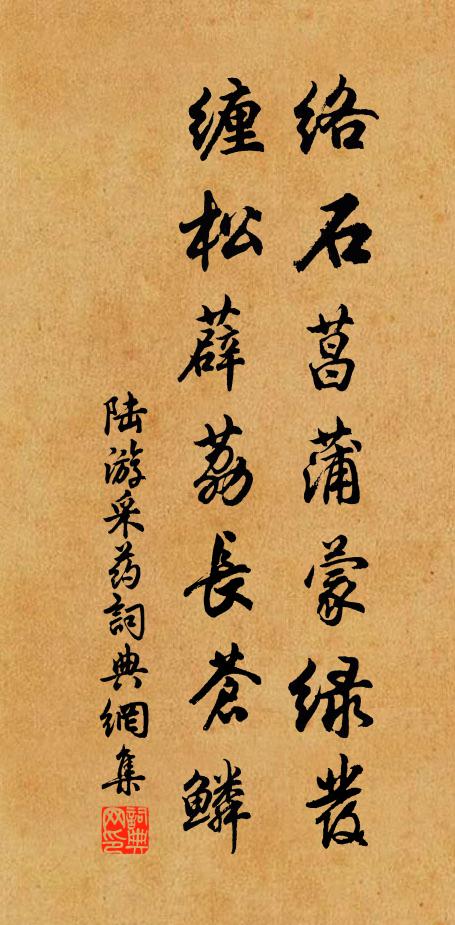 络石菖蒲蒙绿发
缠松薜荔長苍鳞
陆游采药詞典網集
詞典网印